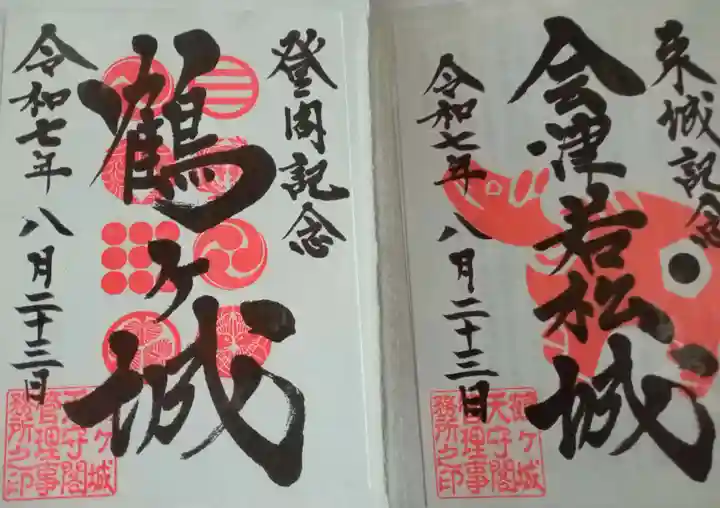 登閣記念
鶴ヶ城
令和七年 八月二十三日
鶴ヶ城
天守閣
管理事
務所之印
来城記念
会津若松城
令和七年 八月二十三日
鶴ヶ城
天守閣
管理事
務所之印